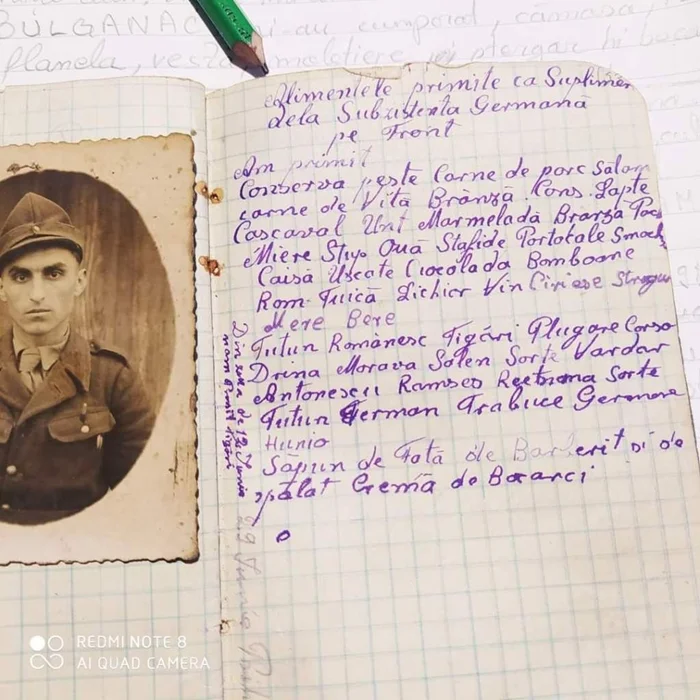 BULGANAC și-au cumpărat, cămașă,
flanela, moletiere și ștergar
Alimentele primite ca Suplimen
dela Subzistenta Germană
pe Front
Am primit
Conserva peste Carne de porc Salam
carne de Vită Brânză Cons. Lapte
Cascaval Unt Marmeladă Branză
Miere Stup Ouă Stafide Portocale Smoch
Caisă Uscate Ciocolada Bomboane
Rom Tuică Lichior Vin Cirieșe Strugu
Mere Bere
Tutun Românesc Tigări Plugare Corso
Drina Morava Solen Sorte Vardar
Antonescu Ramses Reetmana Sorte
Tutun German Trabuce Germane
Hunio
Săpun de Fată de Barberit și de
spălat Cremă de Bocanci
Din seara de 12 Junie
n-am primit tigări
29 Junie
REDMI NOTE 8
AI QUAD CAMERA